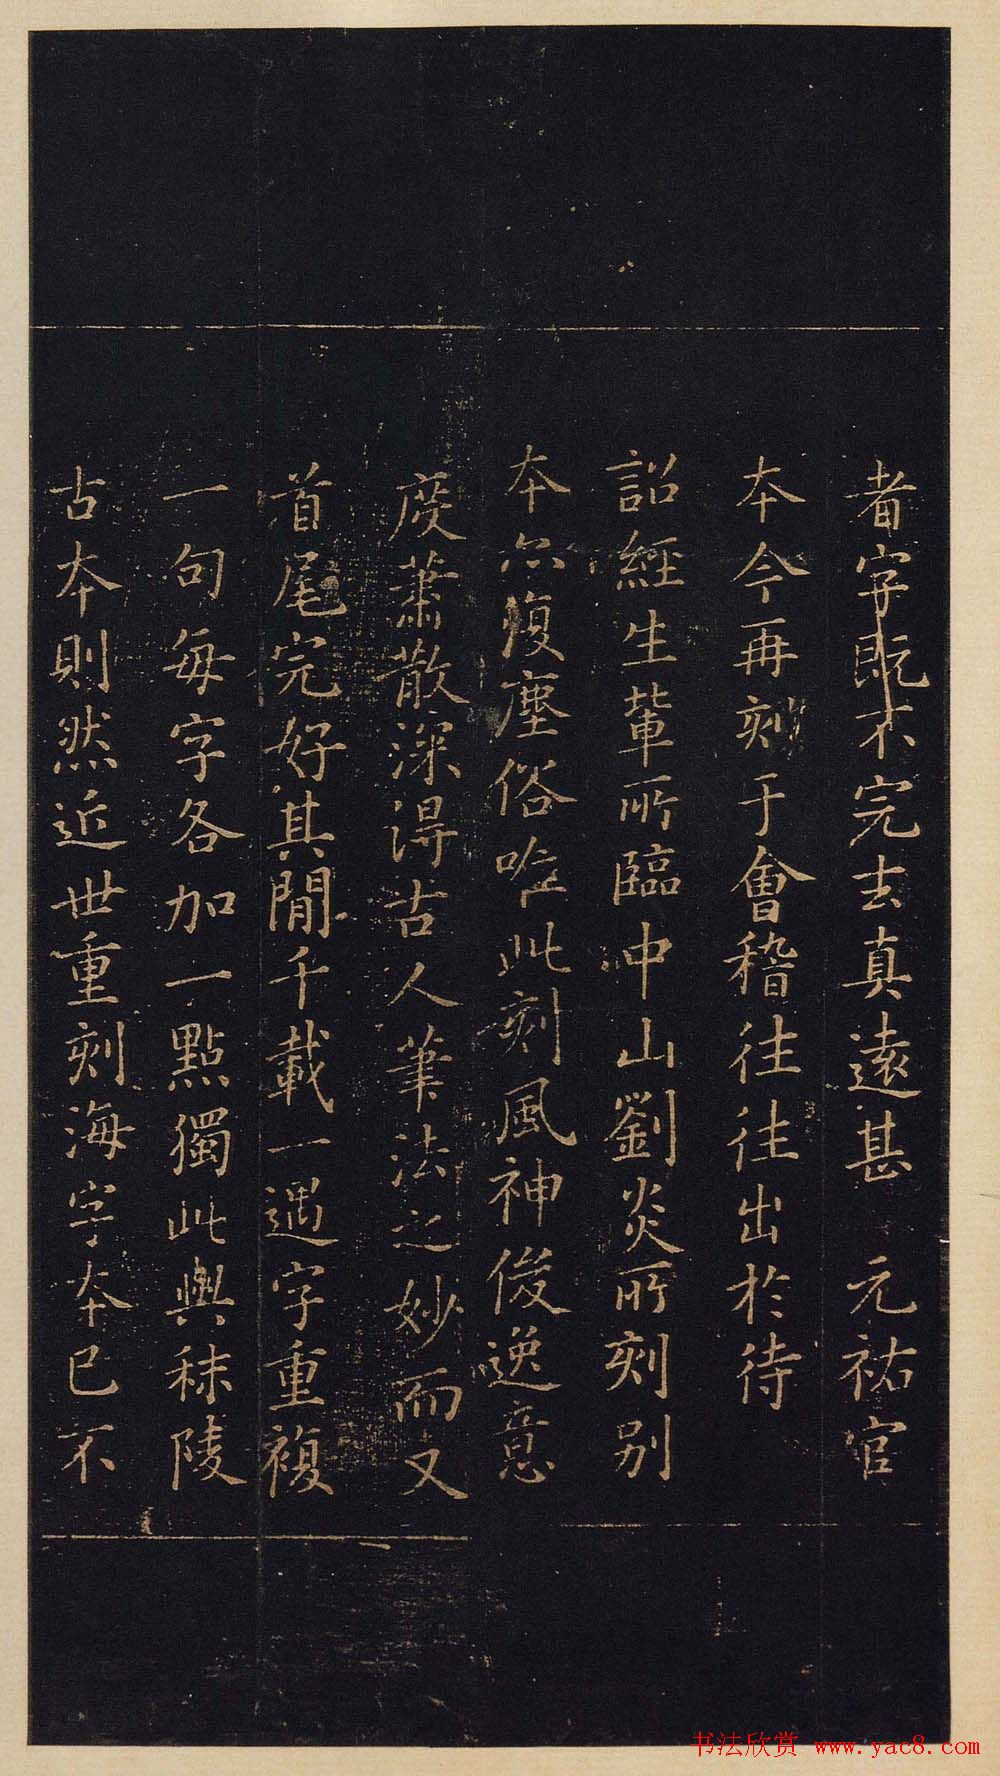 者字既不完去真遠甚　元祐官
本今再刻于會稽往往出於待
詔經生輩所臨中山劉炎所刻别
本亦復塵俗唯此刻風神俊逸意
度蕭散深得古人筆法之妙而又
首尾完好其閒千載一遇字重複
一句每字各加一點獨此與秣陵
古本則然近世重刻海字本已不
书法欣赏 www.yac8.com